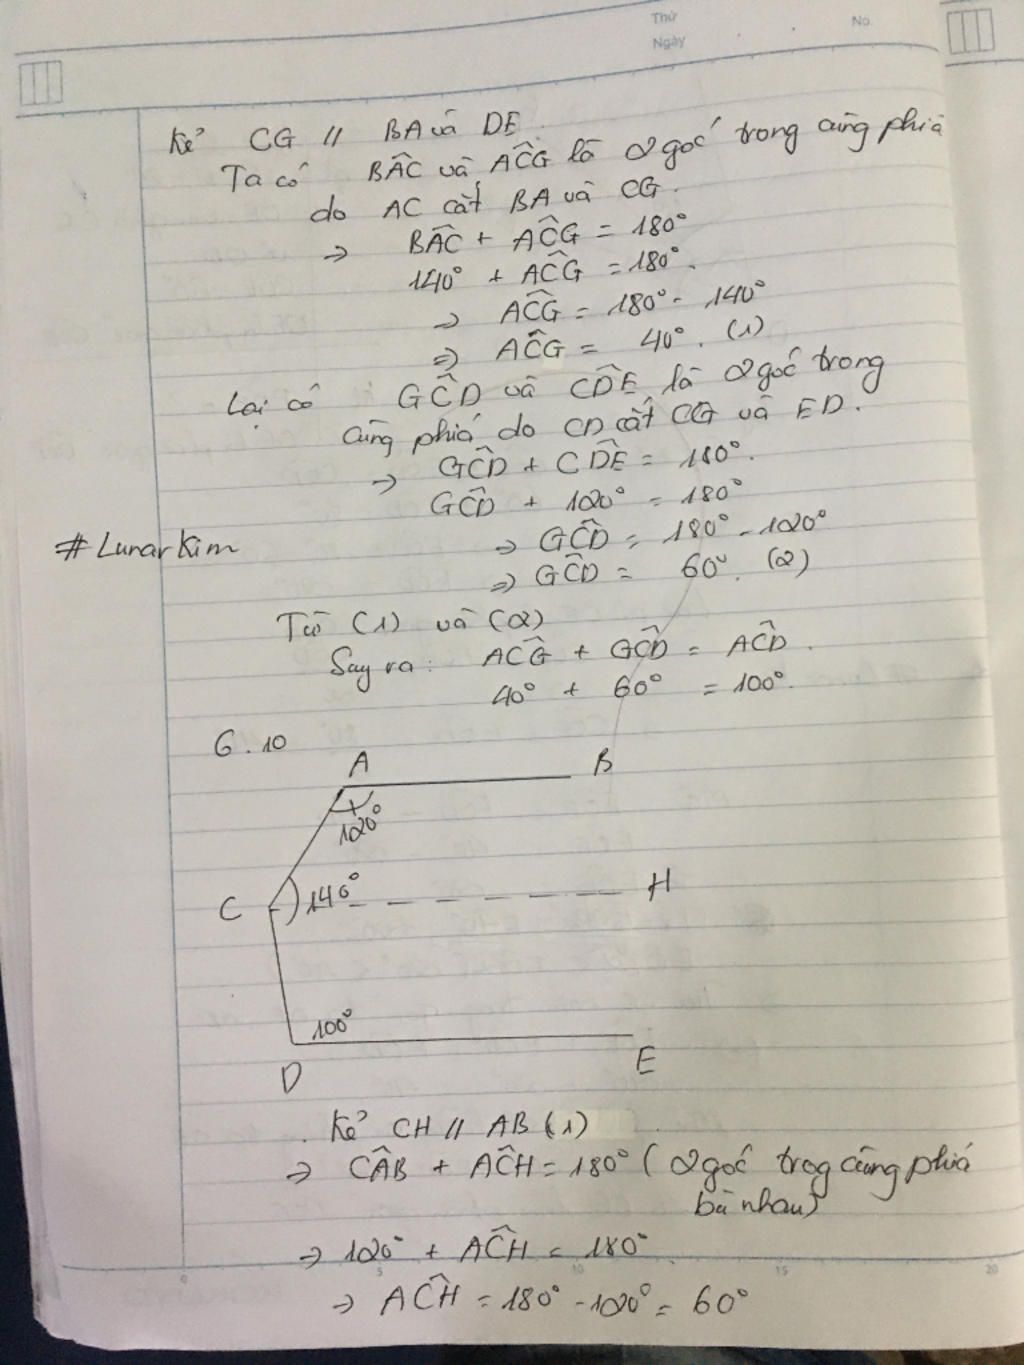 Thứ
Ngày
No.
Kẻ CG // BA và DE.
Ta có BÂC và AĈG là 2 góc trong cùng phía
do AC cắt BA và CG.
⇒ BÂC + AĈG = 180°
140° + AĈG = 180°.
⇒ AĈG = 180° - 140°
⇒ AĈG = 40°. (1)
Lại có GĈD và CD̂E là 2 góc trong
cùng phía do CD cắt CG và ED.
⇒ GĈD + CD̂E = 180°.
GĈD + 120° = 180°
# LunarKim
⇒ GĈD = 180° - 120°
⇒ GĈD = 60°. (2)
Từ (1) và (2)
Suy ra: AĈG + GĈD = AĈD.
40° + 60° = 100°.
6.10
A B
120°
C 140° H
100°
D E
Kẻ CH // AB (1)
⇒ CÂB + AĈH = 180° ( 2 góc trog cùng phía
bù nhau)
⇒ 120° + AĈH = 180°
⇒ AĈH = 180° - 120° = 60°
0 5 10 15 20